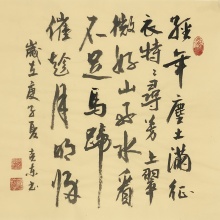 經年塵土滿征
衣特〻尋芳上翠
微好山好水看
不足馬蹄
催趁月明歸
歲在庚子夏 东书